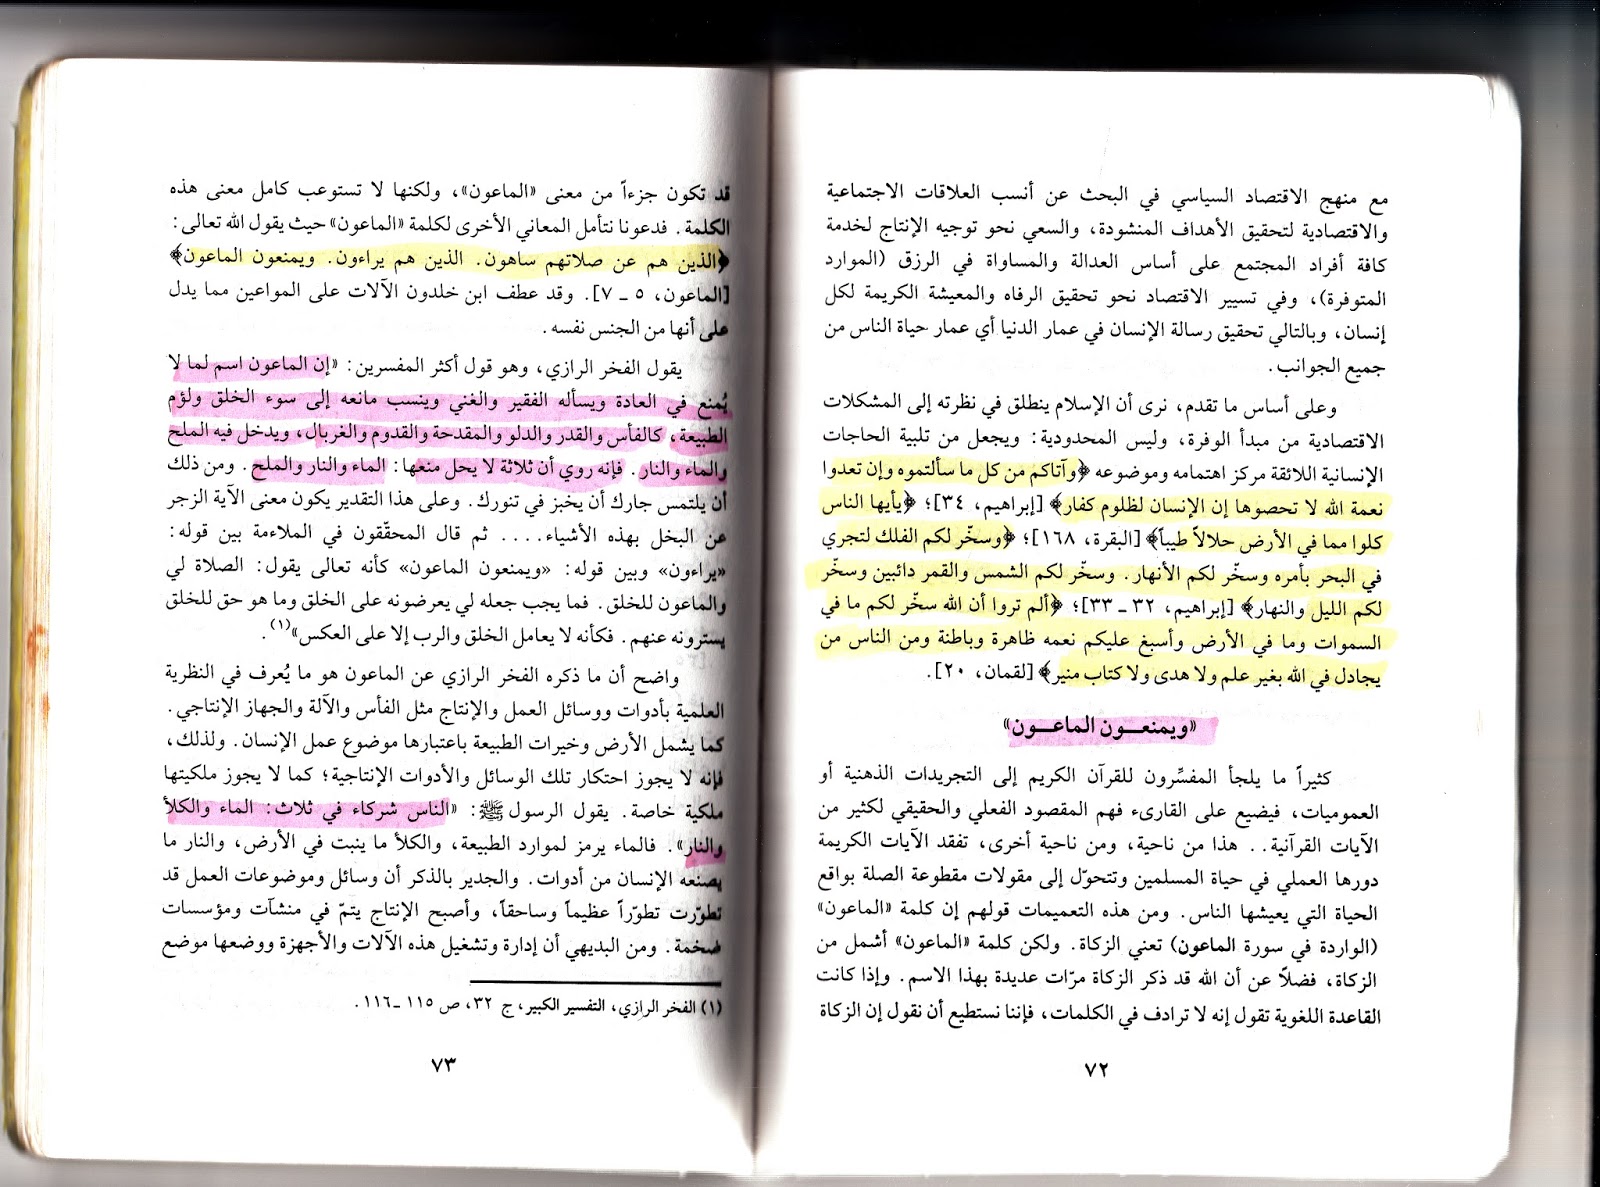 مع منهج الاقتصاد السياسي في البحث عن أنسب العلاقات الاجتماعية
والاقتصادية لتحقيق الأهداف المنشودة، والسعي نحو توجيه الإنتاج لخدمة
كافة أفراد المجتمع على أساس العدالة والمساواة في الرزق (الموارد
المتوفرة)، وفي تسيير الاقتصاد نحو تحقيق الرفاه والمعيشة الكريمة لكل
إنسان، وبالتالي تحقيق رسالة الإنسان في عمار الدنيا أي عمار حياة الناس من
جميع الجوانب.
وعلى أساس ما تقدم، نرى أن الإسلام ينطلق في نظرته إلى المشكلات
الاقتصادية من مبدأ الوفرة، وليس المحدودية: ويجعل من تلبية الحاجات
الإنسانية اللائقة مركز اهتمامه وموضوعه ﴿وآتاكم من كل ما سألتموه وإن تعدوا
نعمة الله لا تحصوها إن الإنسان لظلوم كفار﴾ [إبراهيم، ٣٤]؛ ﴿يأيها الناس
كلوا مما في الأرض حلالاً طيباً﴾ [البقرة، ١٦٨]؛ ﴿وسخّر لكم الفلك لتجري
في البحر بأمره وسخّر لكم الأنهار. وسخّر لكم الشمس والقمر دائبين وسخّر
لكم الليل والنهار﴾ [إبراهيم، ٣٢ ـ ٣٣]؛ ﴿ألم تروا أن الله سخّر لكم ما في
السموات وما في الأرض وأسبغ عليكم نعمه ظاهرة وباطنة ومن الناس من
يجادل في الله بغير علم ولا هدى ولا كتاب منير﴾ [لقمان، ٢٠].
«ويمنعـــون الماعـــون»
كثيراً ما يلجأ المفسِّرون للقرآن الكريم إلى التجريدات الذهنية أو
العموميات، فيضيع على القارىء فهم المقصود الفعلي والحقيقي لكثير من
الآيات القرآنية.. هذا من ناحية، ومن ناحية أخرى، تفقد الآيات الكريمة
دورها العملي في حياة المسلمين وتتحوّل إلى مقولات مقطوعة الصلة بواقع
الحياة التي يعيشها الناس. ومن هذه التعميمات قولهم إن كلمة «الماعون»
(الواردة في سورة الماعون) تعني الزكاة. ولكن كلمة «الماعون» أشمل من
الزكاة، فضلاً عن أن الله قد ذكر الزكاة مرّات عديدة بهذا الاسم. وإذا كانت
القاعدة اللغوية تقول إنه لا ترادف في الكلمات، فإننا نستطيع أن نقول إن الزكاة
٧٢
قد تكون جزءاً من معنى «الماعون»، ولكنها لا تستوعب كامل معنى هذه
الكلمة. فدعونا نتأمل المعاني الأخرى لكلمة «الماعون» حيث يقول الله تعالى:
﴿الذين هم عن صلاتهم ساهون. الذين هم يراءون. ويمنعون الماعون﴾
[الماعون، ٥ ـ ٧]. وقد عطف ابن خلدون الآلات على المواعين مما يدل
على أنها من الجنس نفسه.
يقول الفخر الرازي، وهو قول أكثر المفسرين: «إن الماعون اسم لما لا
يُمنع في العادة ويسأله الفقير والغني وينسب مانعه إلى سوء الخلق ولؤم
الطبيعة، كالفأس والقدر والدلو والمقدحة والقدوم والغربال، ويدخل فيه الملح
والماء والنار. فإنه روي أن ثلاثة لا يحل منعها: الماء والنار والملح. ومن ذلك
أن يلتمس جارك أن يخبز في تنورك. وعلى هذا التقدير يكون معنى الآية الزجر
عن البخل بهذه الأشياء.... ثم قال المحقّقون في الملاءمة بين قوله:
«يراءون» وبين قوله: «ويمنعون الماعون» كأنه تعالى يقول: الصلاة لي
والماعون للخلق. فما يجب جعله لي يعرضونه على الخلق وما هو حق للخلق
يسترونه عنهم. فكأنه لا يعامل الخلق والرب إلا على العكس»(١).
واضح أن ما ذكره الفخر الرازي عن الماعون هو ما يُعرف في النظرية
العلمية بأدوات ووسائل العمل والإنتاج مثل الفأس والآلة والجهاز الإنتاجي.
كما يشمل الأرض وخيرات الطبيعة باعتبارها موضوع عمل الإنسان. ولذلك،
فإنه لا يجوز احتكار تلك الوسائل والأدوات الإنتاجية؛ كما لا يجوز ملكيتها
ملكية خاصة. يقول الرسول ﷺ: «الناس شركاء في ثلاث: الماء والكلأ
والنار». فالماء يرمز لموارد الطبيعة، والكلأ ما ينبت في الأرض، والنار ما
يصنعه الإنسان من أدوات. والجدير بالذكر أن وسائل وموضوعات العمل قد
تطوّرت تطوّراً عظيماً وساحقاً، وأصبح الإنتاج يتمّ في منشآت ومؤسسات
ضخمة. ومن البديهي أن إدارة وتشغيل هذه الآلات والأجهزة ووضعها موضع
(١) الفخر الرازي، التفسير الكبير، ج ٣٢، ص ١١٥ ـ ١١٦.
٧٣